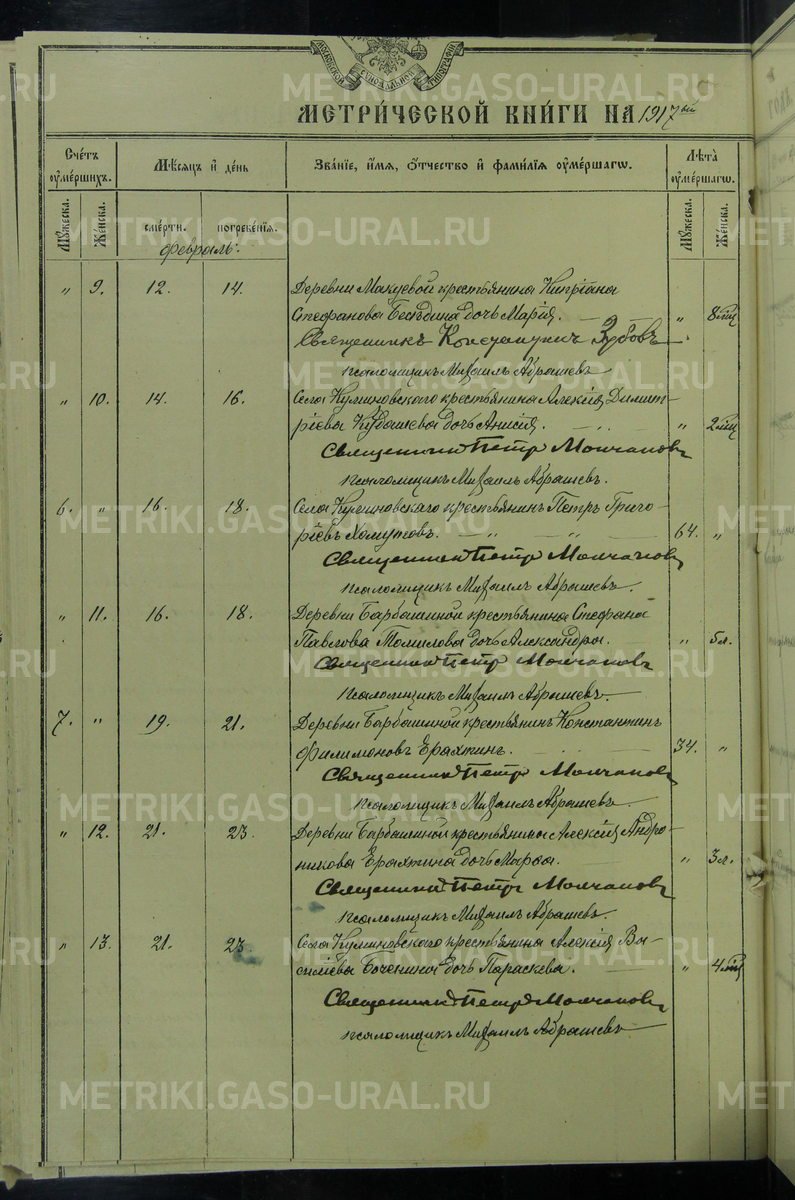 МОСКОВСКОЙ СѴНОДАЛЬНОЙ ТИПОГРАФІИ
МЕТРИ́ЧЕСКОЙ КНИ́ГИ НА 1917 ый
Сче́тъ ᲂу҆ме́ршихъ.
Мѣ́сѧцъ и҆ де́нь
Зва́нїе, и҆́мѧ, ѻ҆́тчество и҆ фами́лїѧ ᲂу҆ме́ршагѡ.
Лѣ́та ᲂу҆ме́ршагѡ.
Мꙋ́жеска. Же́нска. сме́рти. погребе́нїѧ. Мꙋ́жеска. Же́нска.
Февраль.
„ 9. 12. 14. Деревни Макуевой крестьянина Кипріана
Стефанова дочь Марія. — „ 8 мц
Священникъ Константинъ Зубовъ
псаломщикъ Михаилъ Абрашевъ
„ 10. 14. 16. Села Куминовскаго крестьянина Алексія Димит-
ріева Кубашева дочь Анисія. „ 2 мц
Священникъ Петръ Молчановъ
псаломщикъ Михаилъ Абрашевъ.
6. „ 16. 18. Села Куминовскаго крестьянинъ Петръ Григо-
ріевъ Хомутовъ. — „ — „ — 64. „
Священникъ Петръ Молчановъ
псаломщикъ Михаилъ Абрашевъ.
„ 11. 16. 18. Деревни Барбашиной крестьянина Стефана
Павлова Томилова дочь Александра. „ 5 л.
Священникъ Петръ Молчановъ
псаломщикъ Михаилъ Абрашевъ.
7. „ 19. 21. Деревни Барбашиной крестьянинъ Константинъ
Филимоновъ Ерахтинъ. 34. „
Священникъ Петръ Молчановъ
псаломщикъ Михаилъ Абрашевъ
„ 12. 21. 23. Деревни Барбашиной крестьянина Алексія Андро-
никова Ерахтина дочь Марѳа. „ 3 л.
Священникъ Петръ Молчановъ
псаломщикъ Михаилъ Абрашевъ.
„ 13. 21. 23. Села Куминовскаго крестьянина Алексія Ва-
силіева Боченина дочь Параскева. „ 4 мц
Священникъ Петръ Молчановъ
псаломщикъ Михаилъ Абрашевъ
METRIKI.GASO-URAL.RU